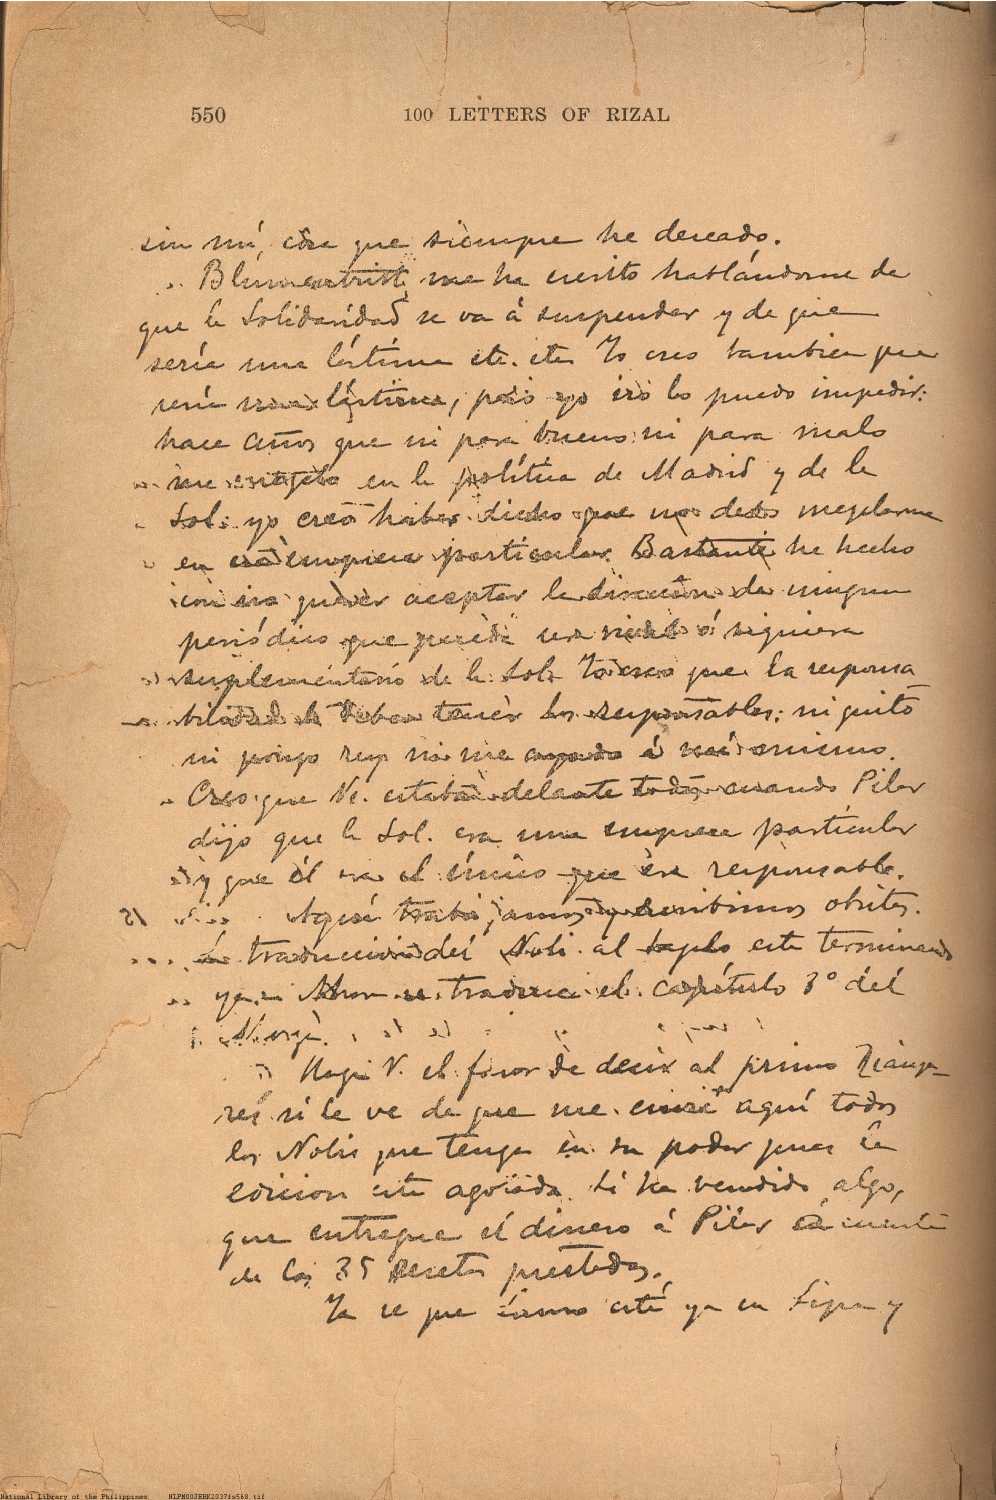 550 100 LETTERS OF RIZAL
sin mí, cosa que siempre he deseado.
Blumentritt me ha escrito hablándome de
que la Solidaridad se va á suspender y de que
sería una lástima etc. etc. Yo creo tambien que
sería una lástima, pero yo no lo puedo impedir:
hace años que ni para bueno ni para malo
me en la política de Madrid y de la
Sol. yo creo haber dicho que no debo mezclarme
en una empresa particular. Bastante he hecho
con no querer aceptar la direccion de ningun
periódico que pueda ser rival ó siquiera
suplementario de la Sol. Yo creo que la responsa
bilidad la deben tener los responsables; ni quito
ni pongo rey ni me ayudo á mí mismo.
Creo que Ve. estaba delante cuando Pilar
dijo que la Sol. era una empresa particular
y que él era el único que era responsable.
Aquí trabajamos y escribimos
La traduccion del Noli al tagalo está terminando
ya. Ahora se traduce el capítulo 3º del
Morga.
Haga V. el favor de decir al primo
si le ve de que me envie aquí todos
los Nolis que tenga en su poder pues la
edicion está agotada. Si ha vendido algo,
que entregue el dinero á Pilar á cuenta
de las 35 Pesetas prestadas.
Ya se que está ya en Lipa y
National Library of the Philippines